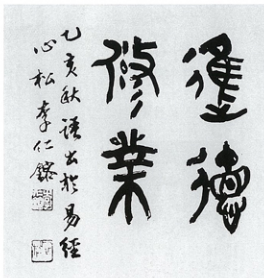 進德
修業
乙亥秋語出於易經
心松李仁鎔